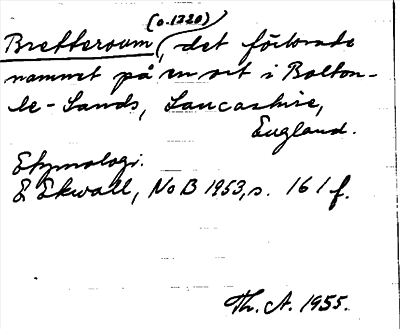 (c. 1220)
Bretteroum, det förlorade
namnet på en ort i Bolton-
le-Sands, Lancashire,
England.
Etymologi.
E Ekwall, NoB 1953, s. 161 f.
Th. A. 1955.